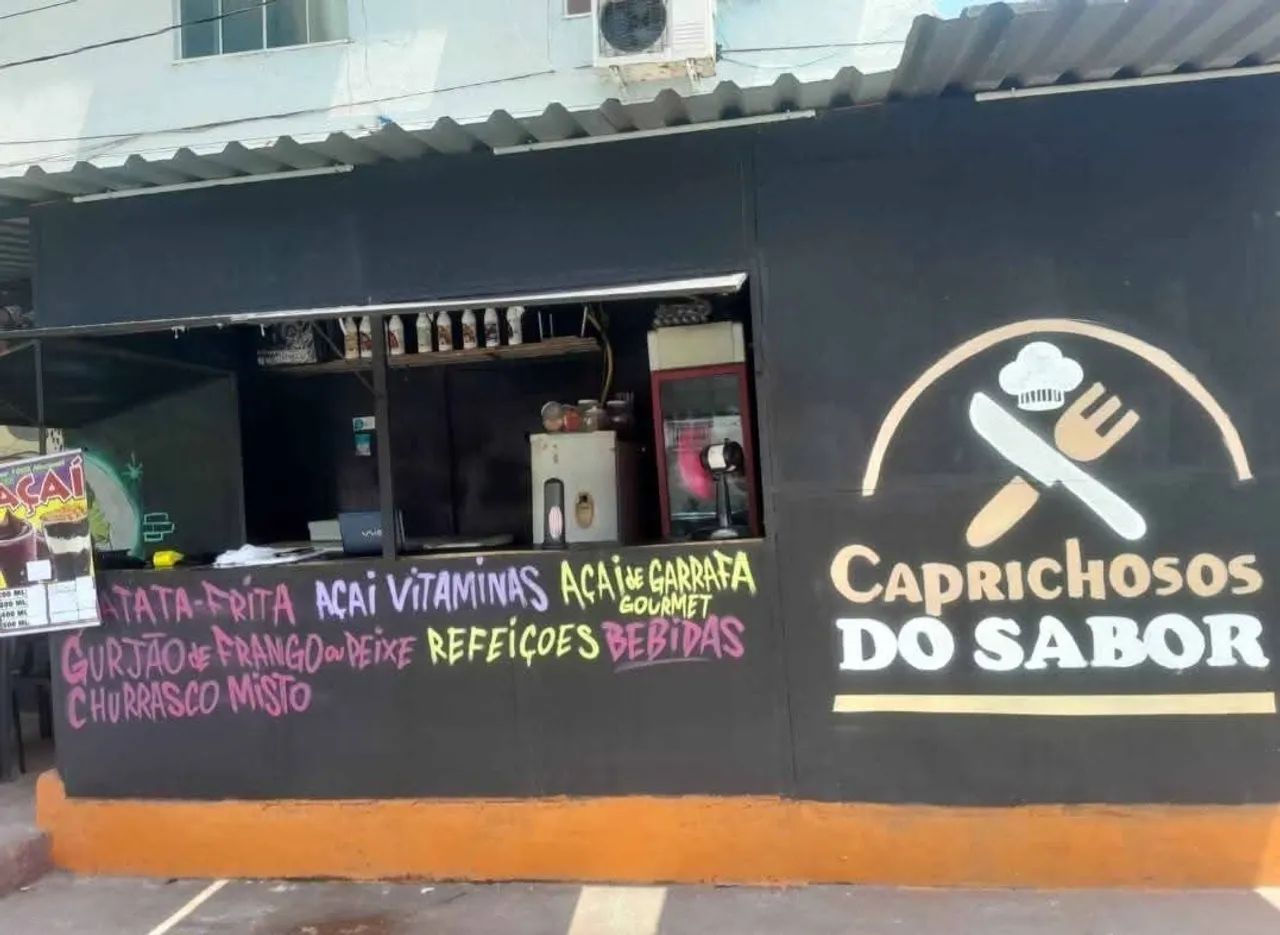 AÇAÍ
BATATA-FRITA AÇAI VITAMINAS AÇAI DE GARRAFA
GOURMET
GURJÃO DE FRANGO OU PEIXE REFEIÇOES BEBIDAS
CHURRASCO MISTO
CAPRICHOSOS
DO SABOR
300 ML
400 ML
500 ML